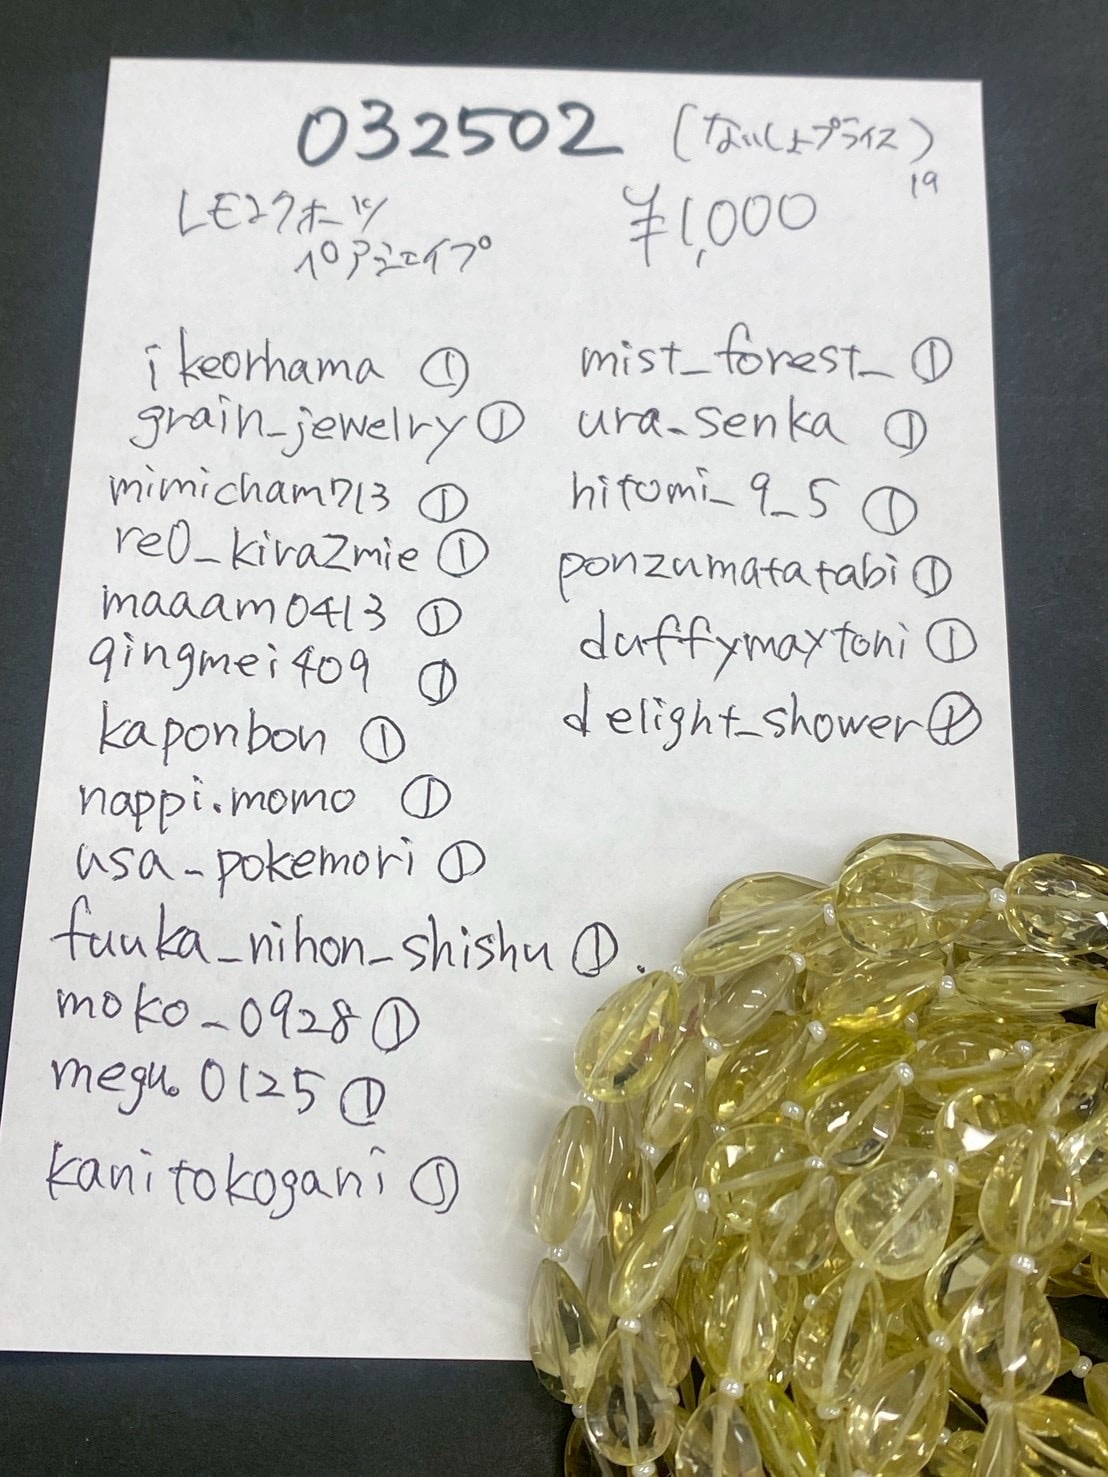 032502 (ないしょプライス)
19
LEモンクオーツ
ペアシェイプ
¥1,000
ikeorhama ①
grain_jewelry ①
mimicham713 ①
re0_kira2mie ①
maaam0413 ①
qingmei409 ①
kaponbon ①
nappi.momo ①
usa_pokemori ①
fuuka_nihon_shishu ①.
moko_0928 ①
megu.0125 ①
kanitokogani ①
mist_forest_ ①
ura_senka ①
hitomi_9_5 ①
ponzumatatabi ①
duffymaytoni ①
delight_shower